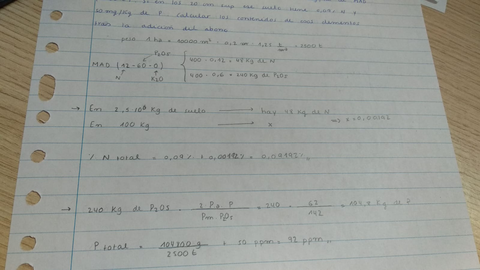 10 mg/Kg de P. Calcular los contenidos de
tras la adición del abono
peso 1 ha = 10000 m² · 0,2 m · 1,25 t/m³ = 2500 t
P₂O₅
MAD (12-60-0) { 400 · 0,12 = 48 Kg de N
N K₂O 400 · 0,6 = 240 Kg de P₂O₅
→ En 2,5·10⁶ Kg de suelo → hay 48 Kg de N
En 100 Kg → x ⇒ x = 0,00192
% N total = 0,09 % + 0,00192% = 0,09192%
→ 240 Kg de P₂O₅ · 2 Pa P / Pm P₂O₅ = 240 · 62 / 142 = 104,8 Kg de P
P total = 104800 g / 2500 t + 50 ppm = 92 ppm